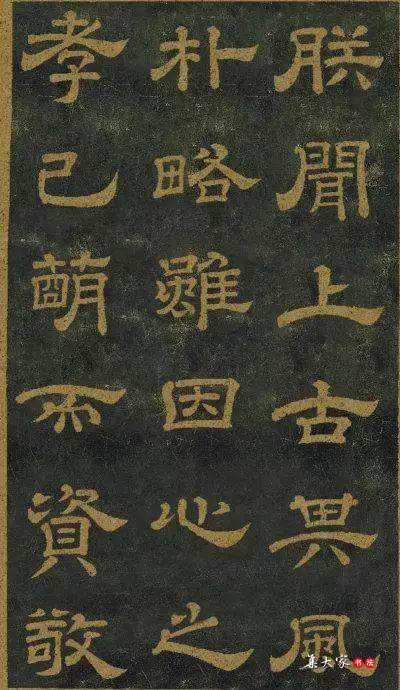 朕聞上古其風
朴略雖因心之
孝已萌而資敬
集大家 书法